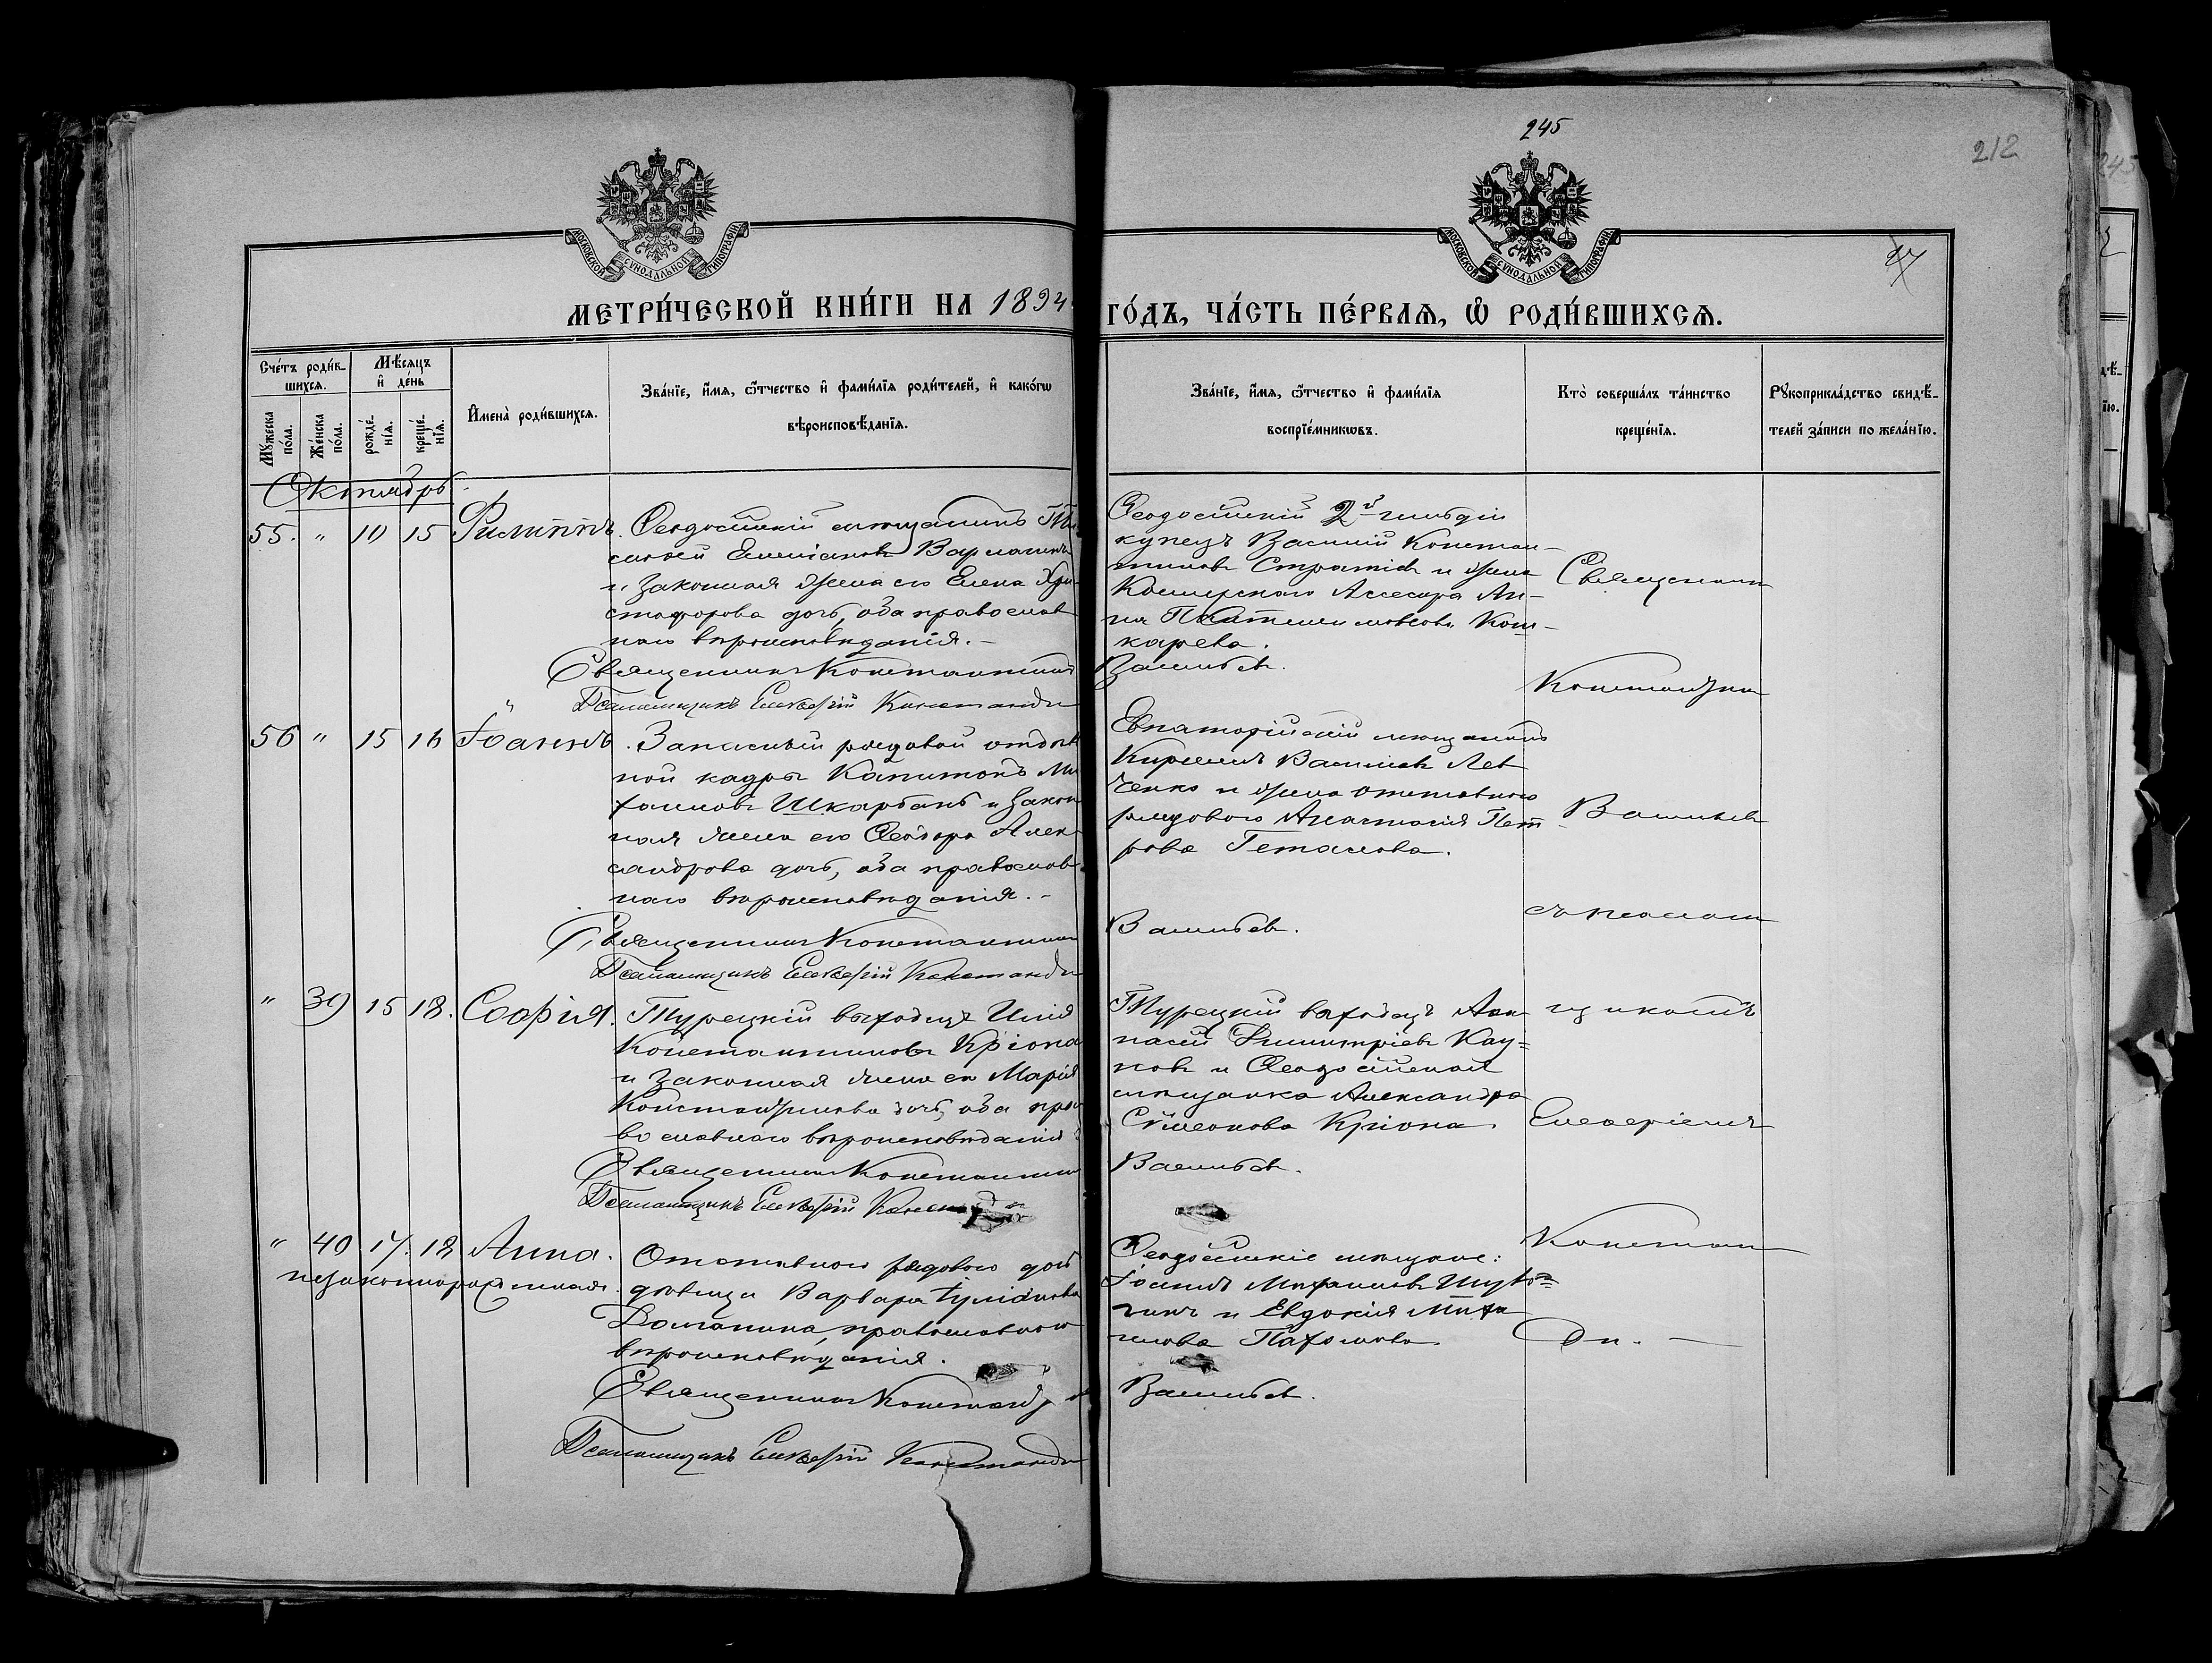 245
212
МОСКОВСКОЙ СѴНОДАЛЬНОЙ ТИПОГРАФІИ
МОСКОВСКОЙ СѴНОДАЛЬНОЙ ТИПОГРАФІИ
МЕТРИ́ЧЕСКОЙ КНИ́ГИ НА 1894
ГО́ДЪ, ЧА́СТЬ ПЕ́РВАѦ, Ѡ҆ РОДИ́ВШИХСѦ.
Сче́тъ роди́в-
шихсѧ.
Мꙋжеска по́ла.
Же́нска по́ла.
Мѣ́сѧцъ и҆ де́нь
рожде́-нїѧ.
креще́-нїѧ.
И҆мена̀ роди́вшихсѧ.
Зва́нїе, и҆́мѧ, ѻ҆́тчество и҆ фами́лїѧ роди́телей, и҆ како́гѡ
вѣроисповѣ́данїѧ.
Зва́нїе, и҆́мѧ, ѻ҆́тчество и҆ фами́лїѧ
воспрїе́мникѡвъ.
Кто̀ соверша́лъ та́инство
креще́нїѧ.
Рꙋкоприкла́дство свидѣ́-
телей за́писи по жела́нїю.
Октябрь.
55. " 10 15 Филиппъ. Ѳеодосійскій мѣщанинъ
Варламовъ
и законная жена его Елена Хри-
стофорова дочь, оба православ
наго вѣроисповѣданія.-
Священникъ Константинъ
Псаломщикъ Елевѳерій Константи
Ѳеодосійскій 2й гильдіи
купецъ Василій Констан-
тиновъ и жена
Ассесора Ан-
на
карева.
Васильевъ.
Священник
Константин
56 " 15 16 Іоаннъ. Запасный рядовой
ной кадры Капитонъ Ми
хаиловъ Шкарбанъ и закон
ная жена его Ѳеодора Алек
сандрова дочь, оба православ
наго вѣроисповѣданія.-
Священникъ Константин
Псаломщикъ Елевѳерій Константи
Евпаторійскій мѣщанинъ
Кириллъ Васильев Лев
ченко и жена отставного
рядового Анастасія Пет
рова
Васильевъ.
Васильев
съ псалом
" 39 15 18. Софія. Турецкій выходецъ Илія
Константиновъ Кріона
и законная жена его Марія
Константинова дочь, оба пра
вославнаго вѣроисповѣданія
Священникъ Константин
Псаломщикъ Елевѳерій
Турецкій выходецъ
Димитріевъ
и Ѳеодосійская
мѣщанка Александра
Симеонова Кріона.
Васильевъ.
щикомъ
Елевѳеріемъ
" 40 17. 18 Анна.
незаконнорожденная. Отставного рядового дочь
дѣвица Варвара Іуліанова
православного
вѣроисповѣданія.
Священникъ Константин
Псаломщикъ Елевѳерій Константи
Ѳеодосійскіе мѣщане:
Іоаннъ Михаиловъ
и Евдокія Миха
илова Пахомова.
Васильевъ.
Констан
ди. -